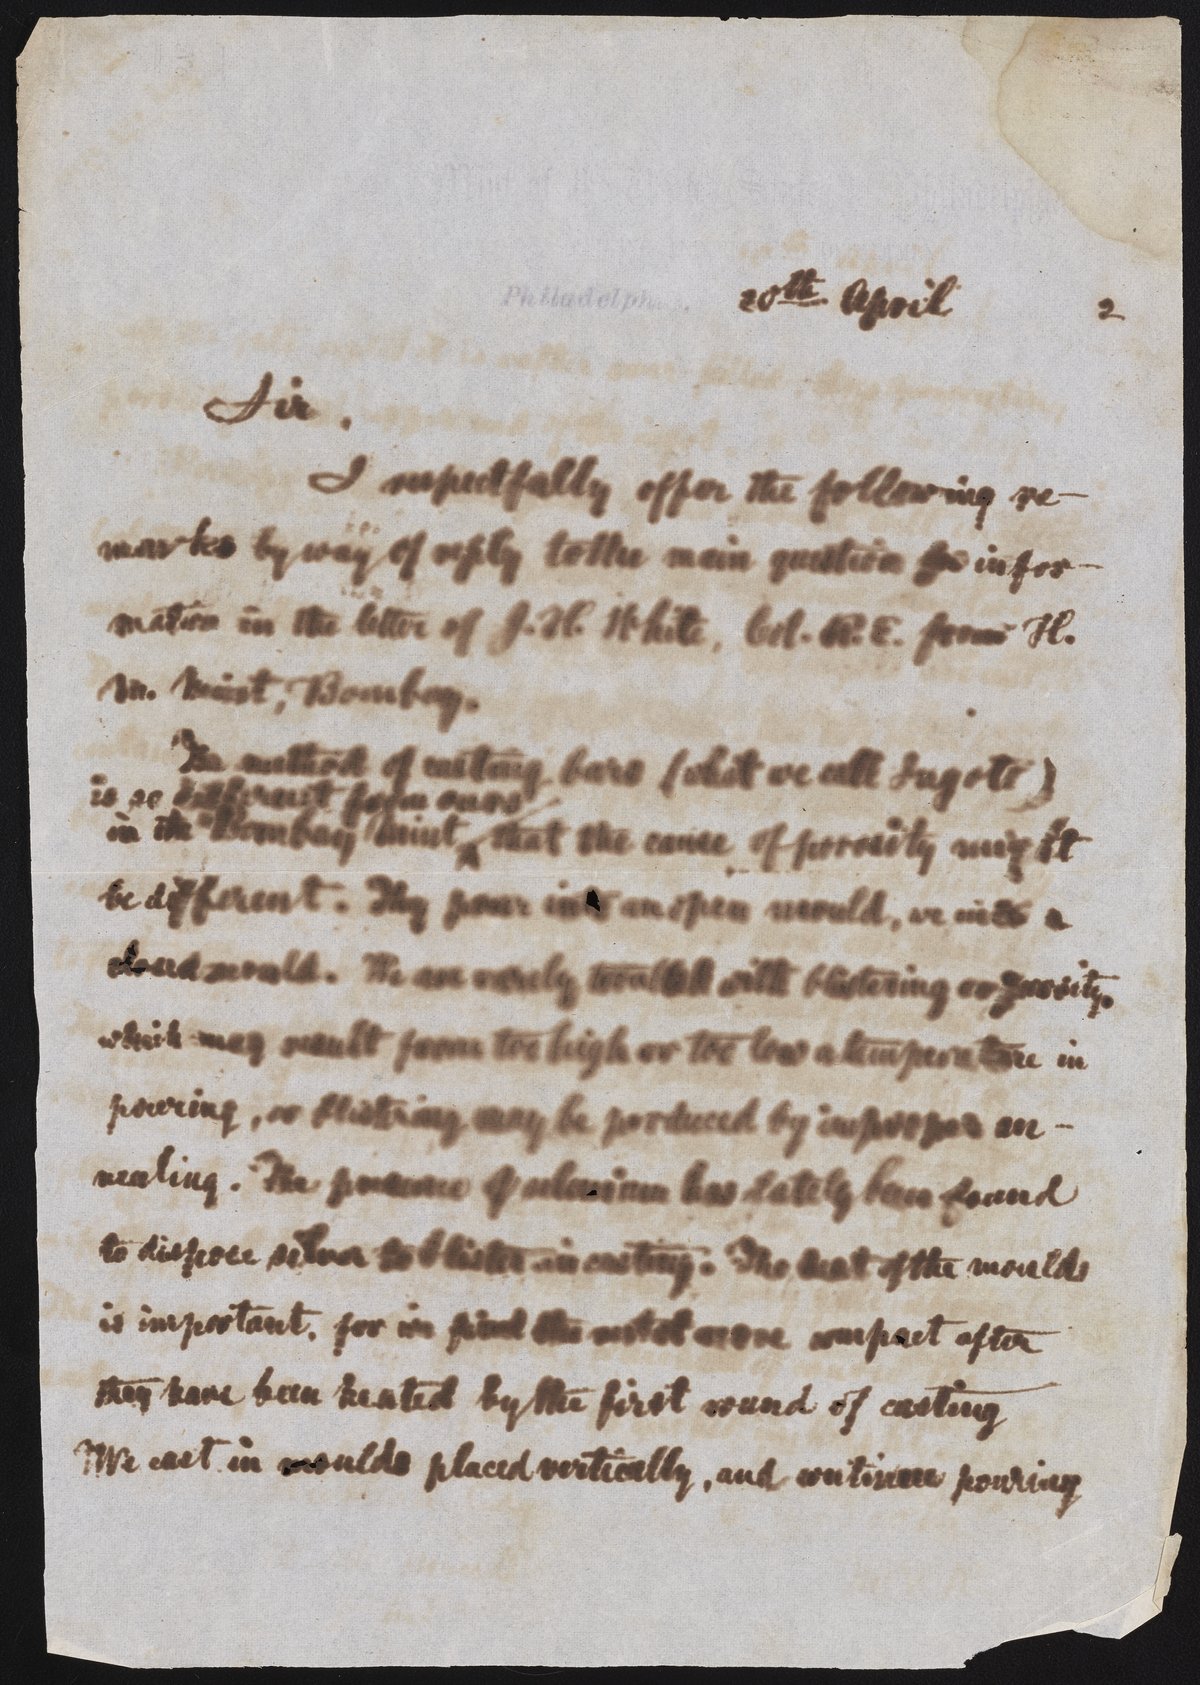 Philadelphia,
20th April 2
Sir,
I respectfully offer the following re-
marks by way of reply to the main question for infor-
mation in the letter of J. H. White, Col. R. E. from H.
M. Mint, Bombay.
The method of casting bars (what we call Ingots)
is so different from ours
in the Bombay Mint, that the cause of porosity might
be different. They pour into an open mould, we into a
closed mould. We are rarely troubled with blistering or porosity,
which may result from too high or too low a temperature in
pouring, or blistering may be produced by improper an-
nealing. The presence of has lately been found
to dispose silver to blister in casting. The heat of the moulds
is important, for we find the metal more compact after
they have been heated by the first round of casting
We cast in moulds placed vertically, and continue pouring